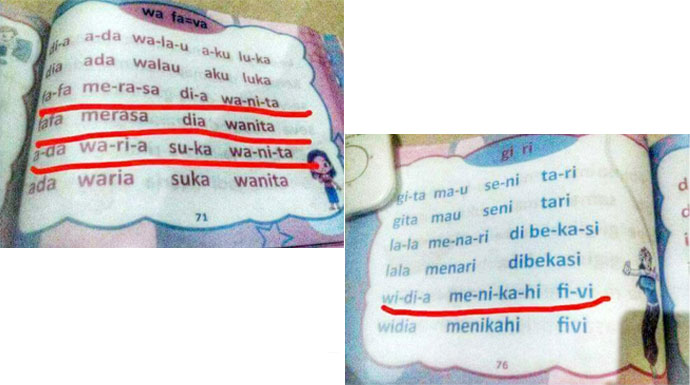 wa fa=va
di-a a-da wa-la-u a-ku lu-ka
dia ada walau aku luka
fa-fa me-ra-sa di-a wa-ni-ta
fafa merasa dia wanita
a-da wa-ri-a su-ka wa-ni-ta
ada waria suka wanita
71
gi ri
gi-ta ma-u se-ni ta-ri
gita mau seni tari
la-la me-na-ri di be-ka-si
lala menari dibekasi
wi-di-a me-ni-ka-hi fi-vi
widia menikahi fivi
76